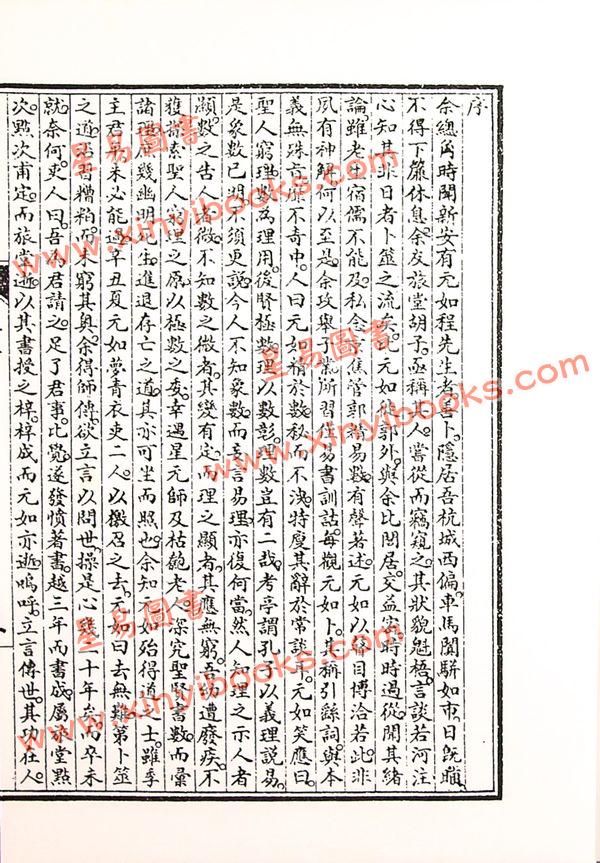 序
余總角時聞新安有元如程先生者善卜隱居吾杭城西偏車馬闐駢如市日旣曛
不得下簾休息余友旅堂胡子亟稱其人嘗從而竊窺之其狀貌魁梧言談若河注
心知其非日者卜筮之流矣元如徙郭外與余比閭居交益密時時過從聞其緒
論雖老生宿儒不能及私念京焦管郭皆易數有聲著述元如以瞽目博洽若此非
夙有神解何以至是余攻舉子業所習在易書訓詁每觀元如卜其稱引繇詞與本
義無殊亦靡不奇中人曰元如精於數私而不決特廋其辭於常談耳元如笑應曰
聖人窮理數為理用後賢極數理以數彰理數豈有二哉考亭謂孔子以義理說易
是象數已明不須更說今人不知象數而妄言易理亦復何當然人知理之示人者
顯數之告人者微不知數之微者其幾有定而理之顯者其應無窮吾幼遭廢疾不
獲探索聖人窮理之原以極數之变幸遇星元師及枯匏老人深究聖賢書數而彙
諸理庶幾幽明死生進退存亡之道其亦可坐而照也余知元如殆得道之士雖季
主君平未必能過辛丑夏元如夢青衣吏二人以檄召之去元如曰去無難第卜筮
之道沾沾糟粕而未窮其奥余得師傳欲立言以問世操是心幾十年矣而卒未
就奈何吏人曰吾為君請之足了君事比覺遂發憤著書越三年而書成屬旅堂點
次點次甫定而旅堂逝以其書授之梓梓成而元如亦逝嗚呼立言傳世其功在人
星易圖書
www.xinyibooks.com
星易圖書
www.xinyibooks.com
星易圖書
www.xinyibooks.com